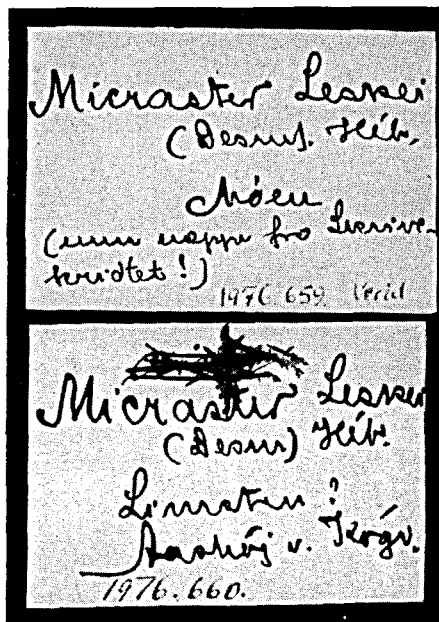 Micraster Leskei
(Desm). Héb.
Möen
(men neppe fra Skrive-
kridtet!)
1976.659.
Micraster Leskei
(Desm) Héb.
Limsten?
Aashöj v. Kjøge.
1976.660.